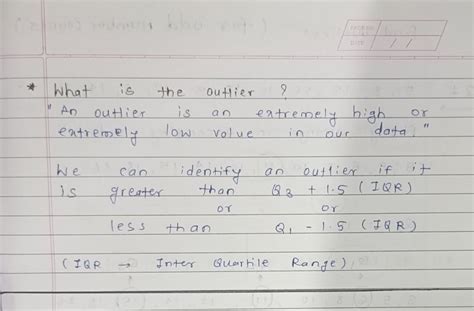 DATE / /
* What is the outlier ?
" An outlier is an extremely high or
extremely low value in our data. "
We can identify an outlier if it
is greater than Q3 + 1.5 ( IQR )
or or
less than Q1 - 1.5 ( IQR )
( IQR → Inter Quartile Range )